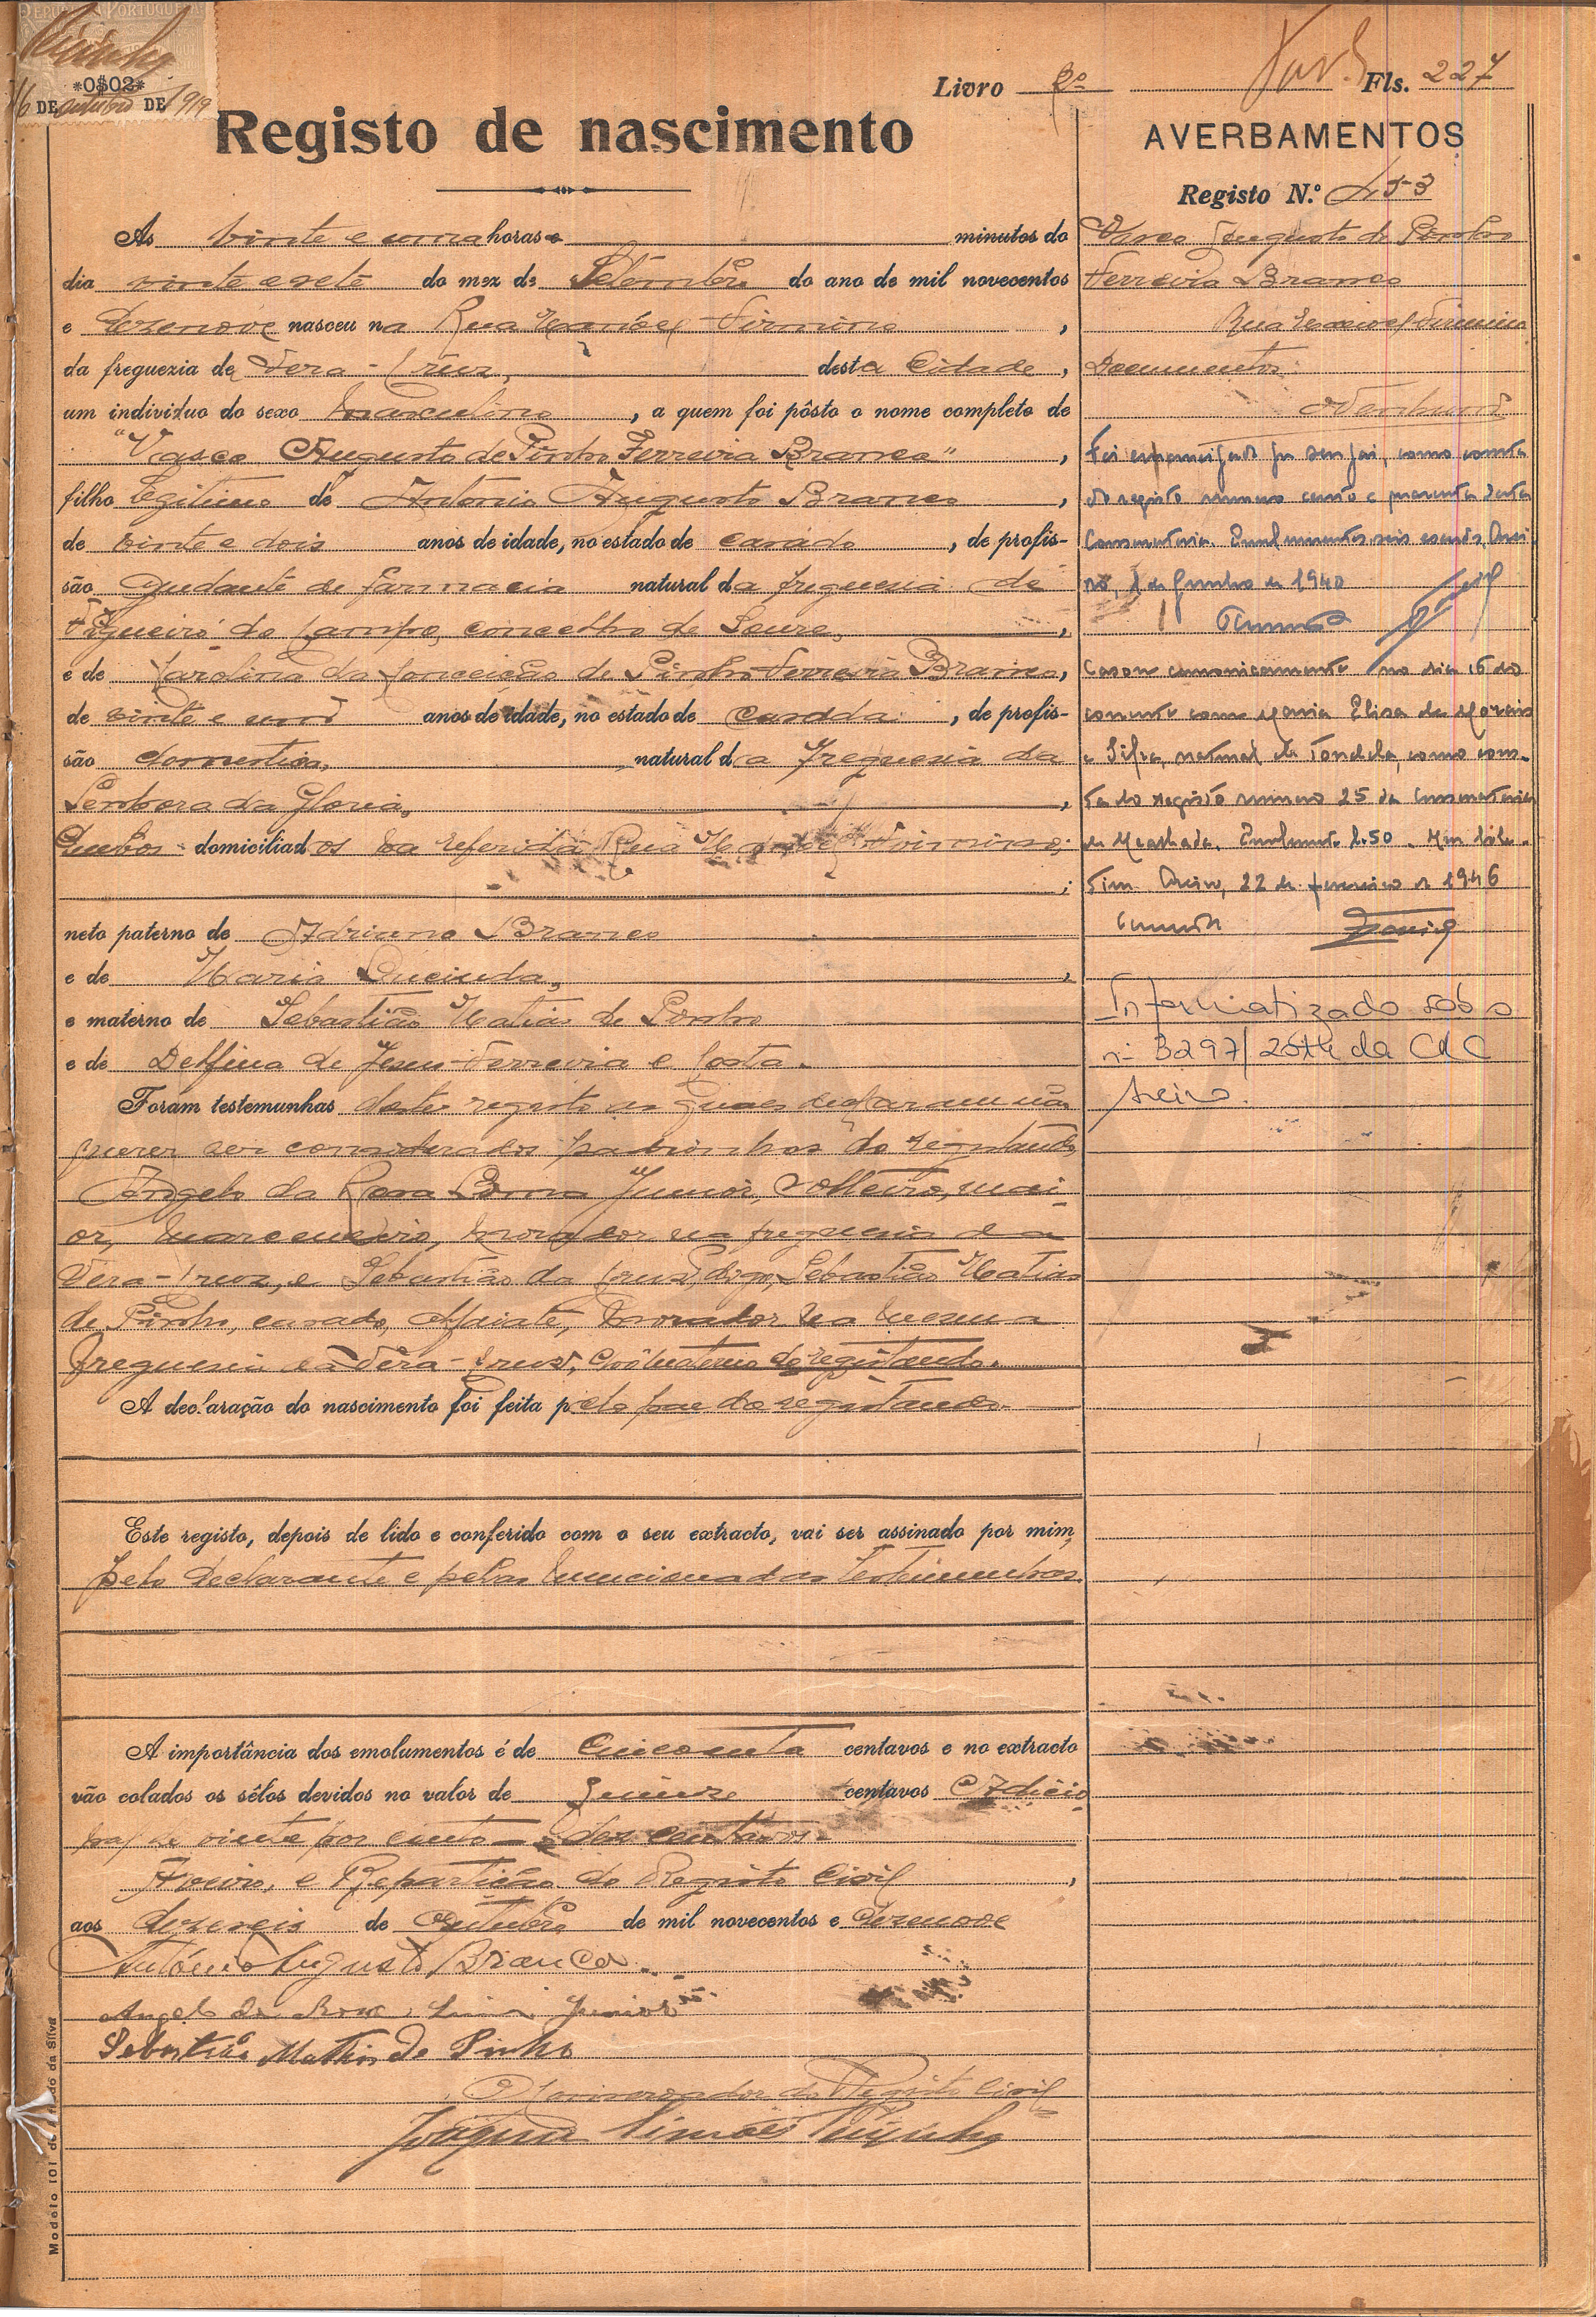 REPUBLICA PORTUGUESA
*0$02*
16 DE outubro DE 1919
Livro 2º Fls. 227
Registo de nascimento
AVERBAMENTOS
Registo N.º 453
Ás vinte e uma horas e minutos do
dia vinte e sete do mez de Setembro do ano de mil novecentos
e dezenove nasceu na Rua Manoel Firmino,
da freguezia de Vera-Cruz, desta Cidade,
um individuo do sexo masculino, a quem foi pôsto o nome completo de
"Vasco Augusto de Pinho Ferreira Branco",
filho legitimo de Antonio Augusto Branco,
de vinte e dois anos de idade, no estado de casado, de profis-
são ajudante de farmacia natural da freguesia de
Figueiró do Campo, concelho de Soure,
e de Carolina da Conceição de Pinho Ferreira Branco,
de vinte e um anos de idade, no estado de casada, de profis-
são domestica, natural da freguesia da
Senhora da Gloria,
Ambos domiciliados na referida Rua Manoel Firmino;
neto paterno de Adriano Branco
e de Maria Lucinda,
e materno de Sebastião Matias de Pinho
e de Delfina de Jesus Ferreira e Costa.
Foram testemunhas deste registo as quaes declararam não
querer ser considerados padrinhos do registando,
Angelo da Rosa Lima Junior, solteiro, mai-
or, marceneiro, morador na freguesia da
Vera-Cruz, e Sebastião da Cruz, digo, Sebastião Matias
de Pinho, casado, alfaiate, morador na mesma
freguesia da Vera-Cruz, avô materno do registando.
A declaração do nascimento foi feita pelo pae do registando.
Este registo, depois de lido e conferido com o seu extracto, vai ser assinado por mim,
pelo declarante e pelas mencionadas testemunhas.
A importância dos emolumentos é de cincoenta centavos e no extracto
vão colados os sêlos devidos no valor de quinze centavos Adicio
nal de vinte por cento - dez centavos.
Aveiro, e Repartição do Registo Civil,
aos dezeseis de Outubro de mil novecentos e dezenove
António Augusto Branco.
Angelo da Rosa Lima Junior
Sebastião Mathias de Pinho
O Conservador do Registo Civil
Joaquim Simões Peixinho
Vasco Augusto de Pinho
Ferreira Branco
Rua Manoel Firmino
Documentos:
Nenhum
Foi emancipado por seu pai, como consta
do registo numero cento e quarenta desta
Conservatória. Emolumentos seis escudos. Avei
ro, 1 de Junho de 1940
Casou canonicamente no dia 6 do
corrente com Maria Elisa de Morais
e Silva, natural de Tondela, como cons-
ta do registo numero 25 da Conservatória
da Mealhada. Emolumento 2.50. Meu bole-
tim. Aveiro, 22 de janeiro de 1946
Informatizado sob o
nº 3297/2014 da CRC
Aveiro.
Modelo 101 da Silva